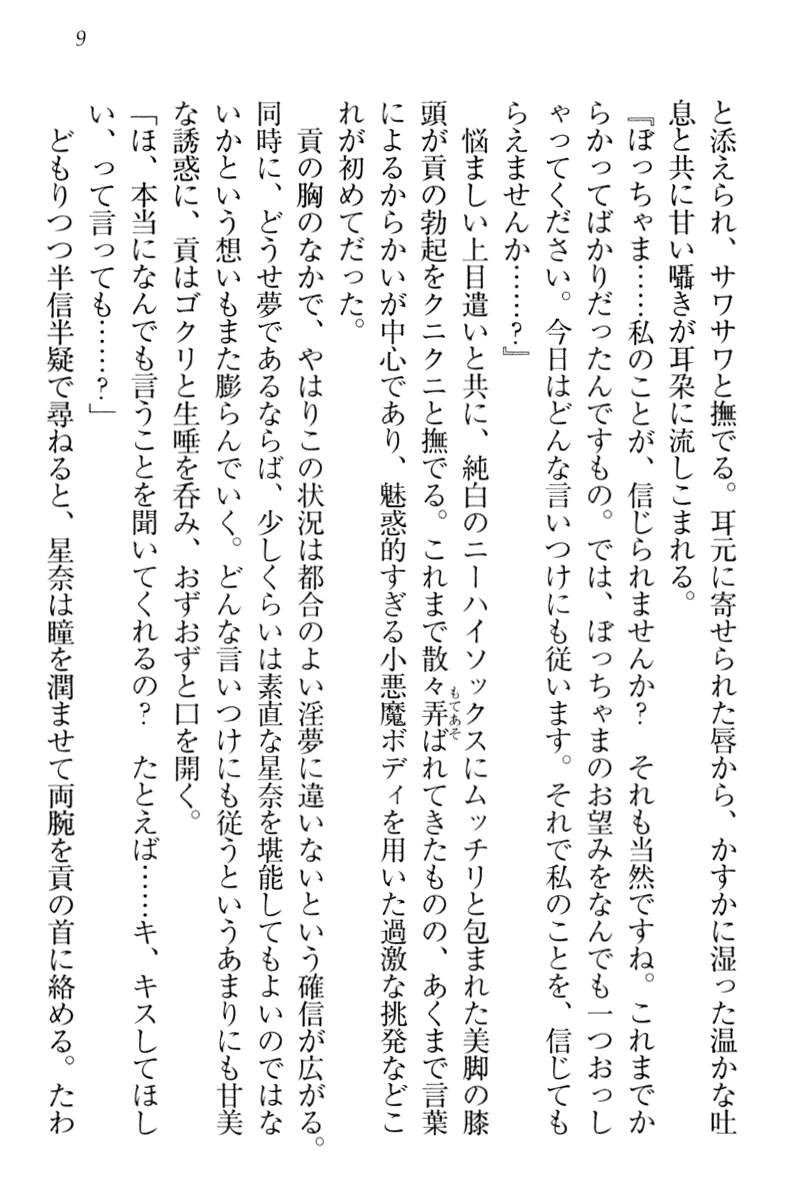 9
と添えられ、サワサワと撫でる。耳元に寄せられた唇から、かすかに湿った温かな吐
息と共に甘い囁きが耳朶に流しこまれる。
『ぼっちゃま……私のことが、信じられませんか？　それも当然ですね。これまでか
らかってばかりだったんですもの。では、ぼっちゃまのお望みをなんでも一つおっし
ゃってください。今日はどんな言いつけにも従います。それで私のことを、信じても
らえませんか……？』
　悩ましい上目遣いと共に、純白のニーハイソックスにムッチリと包まれた美脚の膝
頭が貢の勃起をクニクニと撫でる。これまで散々弄もてあそばれてきたものの、あくまで言葉
によるからかいが中心であり、魅惑的すぎる小悪魔ボディを用いた過激な挑発などこ
れが初めてだった。
　貢の胸のなかで、やはりこの状況は都合のよい淫夢に違いないという確信が広がる。
同時に、どうせ夢であるならば、少しくらいは素直な星奈を堪能してもよいのではな
いかという想いもまた膨らんでいく。どんな言いつけにも従うというあまりにも甘美
な誘惑に、貢はゴクリと生唾を呑み、おずおずと口を開く。
「ほ、本当になんでも言うことを聞いてくれるの？　たとえば……キ、キスしてほし
い、って言っても……？」
　どもりつつ半信半疑で尋ねると、星奈は瞳を潤ませて両腕を貢の首に絡める。たわ